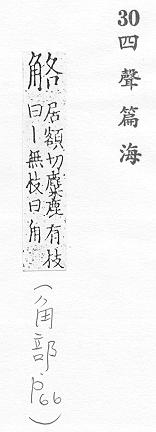 30 四聲篇海
觡
居額切麋鹿有枝
曰丨無枝曰角
(角部 P.66)